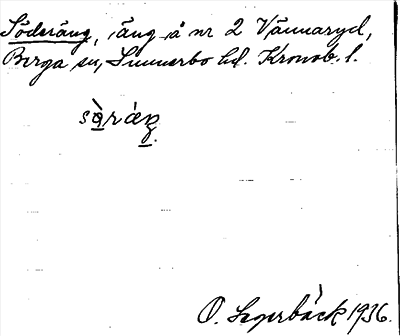 Söderäng, äng å nr 2 Vännaryd,
Berga sn, Sunnerbo hd. Kronob. l.
O. Lagerbäck 1936.